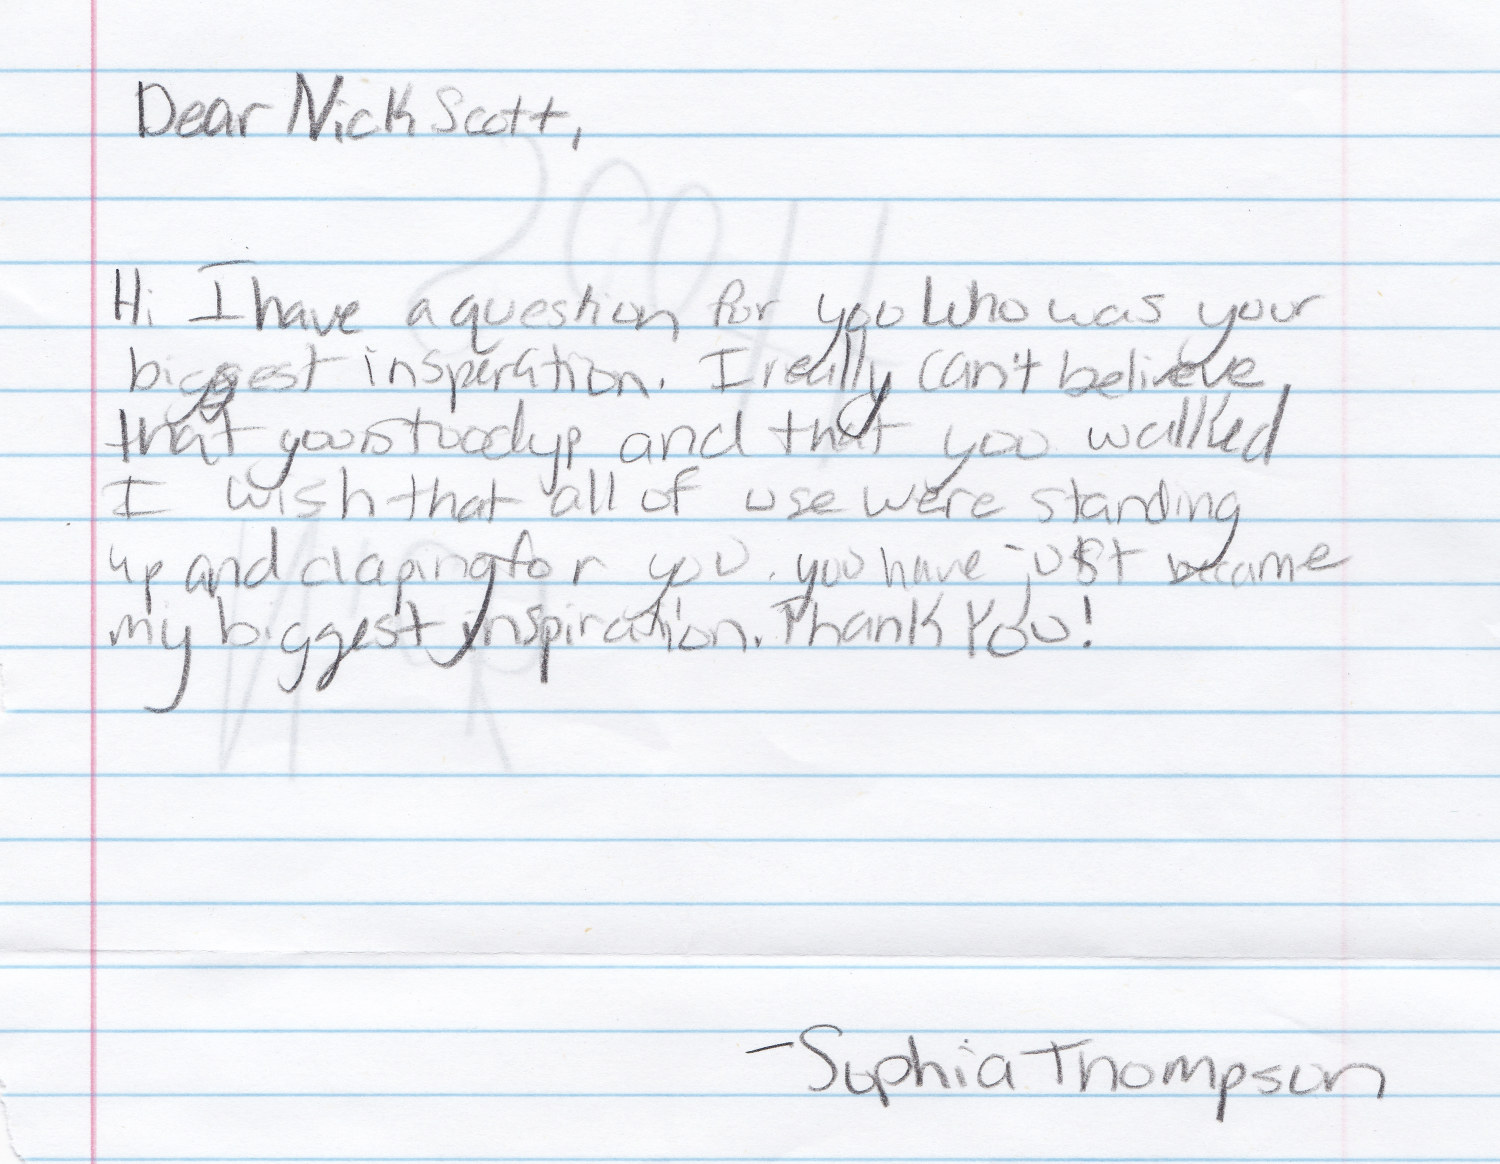 Dear Nick Scott,
Hi I have a question for you Who was your
biggest insperation. I really can't believe
that you stoodup and that you wallked
I wish that all of use were standing
up and claping for you. you have just became
my biggest inspiration. Thank You!
-Sophia Thompson